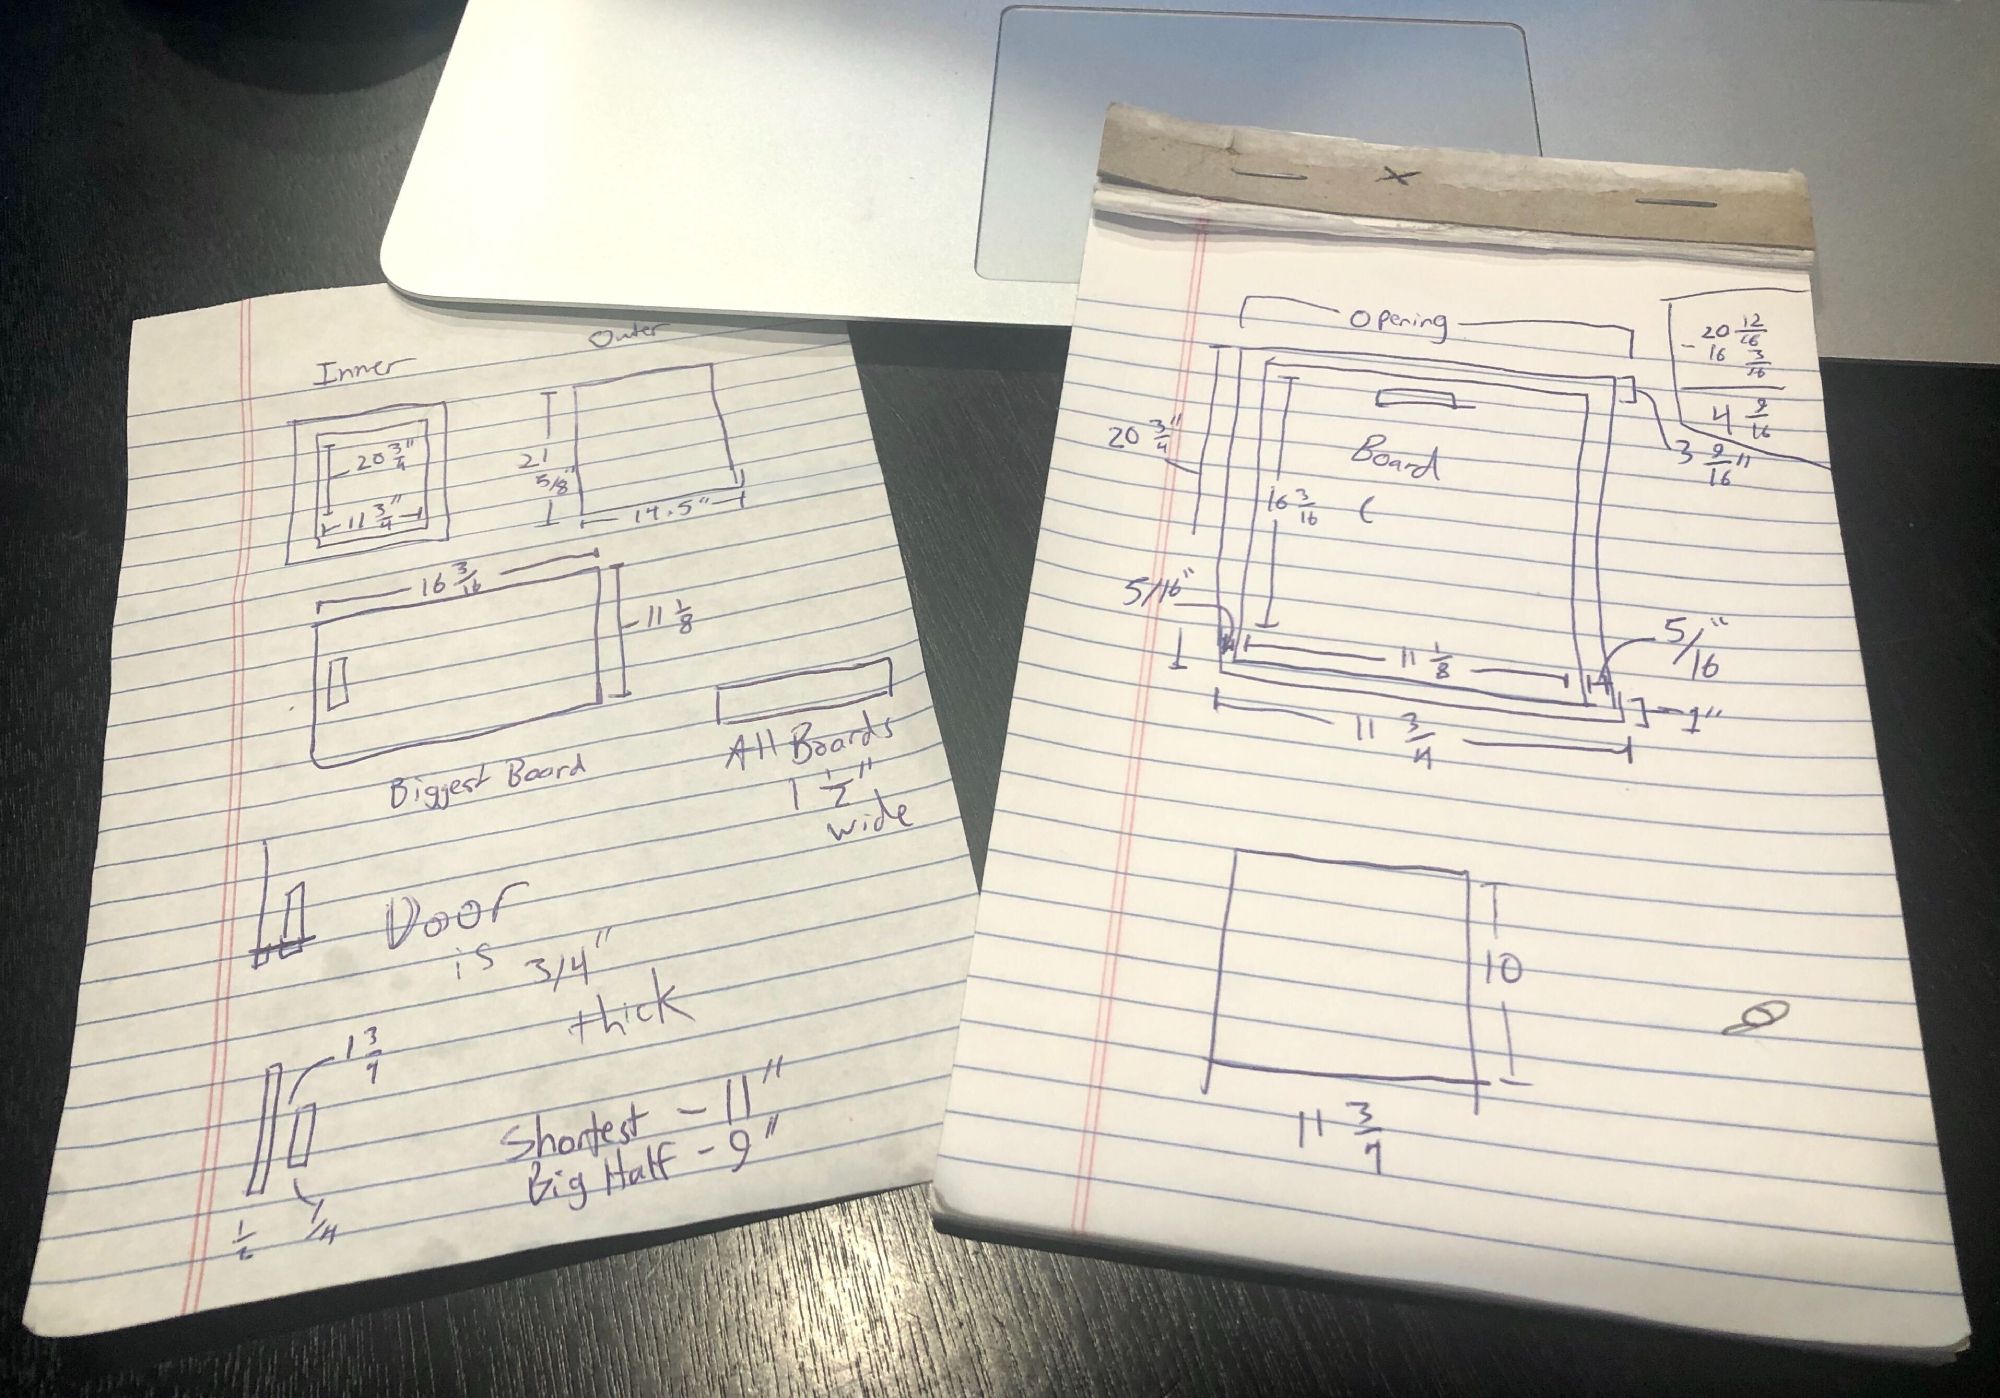 Inner
Outer
20 3/4"
11 3/4"
21 5/8"
14.5"
16 3/16
11 1/8
Biggest Board
All Boards
1 1/2"
wide
Door
is 3/4"
thick
1 3/4
1/2
1/4
Shortest - 11"
Big Half - 9"
x
Opening
20 12/16
- 16 3/16
4 9/16
20 3/4"
3 9/16"
Board
16 3/16
5/16"
11 1/8
5/16"
1"
11 3/4
10
11 3/4